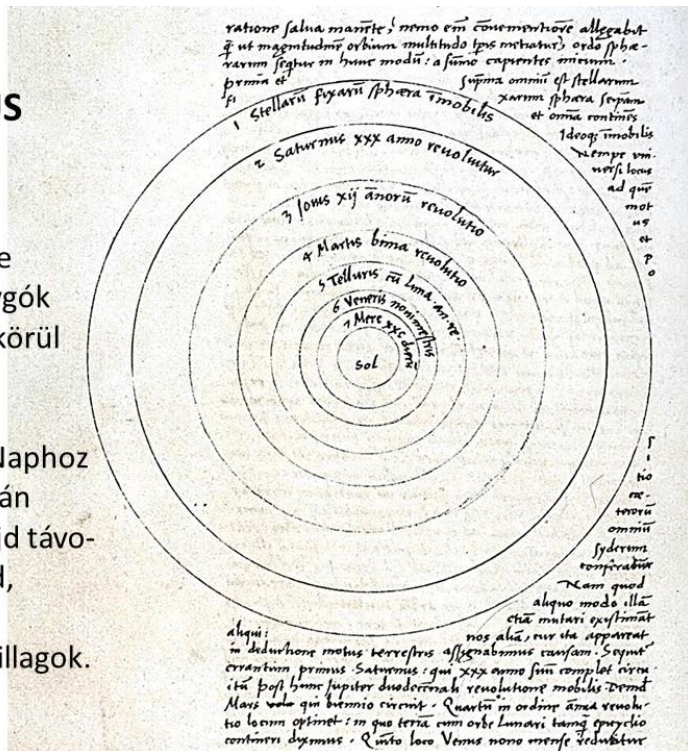 us
e
gók
körül
Naphoz
án
jd távo-
d,
illagok.
ratione salva manēte, nemo em̄ convenientiorē allegabit
q̄ ut magnitudinē orbium multitudo tp̄is metiatur, ordo sphæ-
rarum seqtur in hunc modū: a sum̄o capientes inicium.
prima et suprema omniū est stellarum
fi xarum sphæra seipsam
et omnia continēs
Ideoqȝ im̄obilis
Nempe uni-
versi locus
ad quē
mot
us
et
p
o
1 Stellarū fixarū sphæra im̄obilis
2 Saturnus xxx anno revolvitur
3 Iovis xij an̄orū revolutio
4 Martis bima revolutio
5 Telluris cū Luna an. re.
6 Veneris nonimestris
7 Merc xxc dierū
Sol
s
i
tio
cæ-
terorū
omniū
syderum
conferatur
Nam quod
aliquo modo illā
etiā mutari existimāt
aliqui: nos aliā, cur ita appareat
in deductione motus terrestris assignabimus causam. Sequit̄
errantium primus Saturnus: qui xxx anno suū complet circu-
itū post hunc Jupiter duodecennali revolutione mobilis. Demd̄
Mars qui biennio circuit. Quartū in ordine annua revolu-
tio locum optinet: in quo terrā cum orbe Lunari tamqȝ epicyclio
contineri diximus. Quinto loco Venus nono mense reducitur